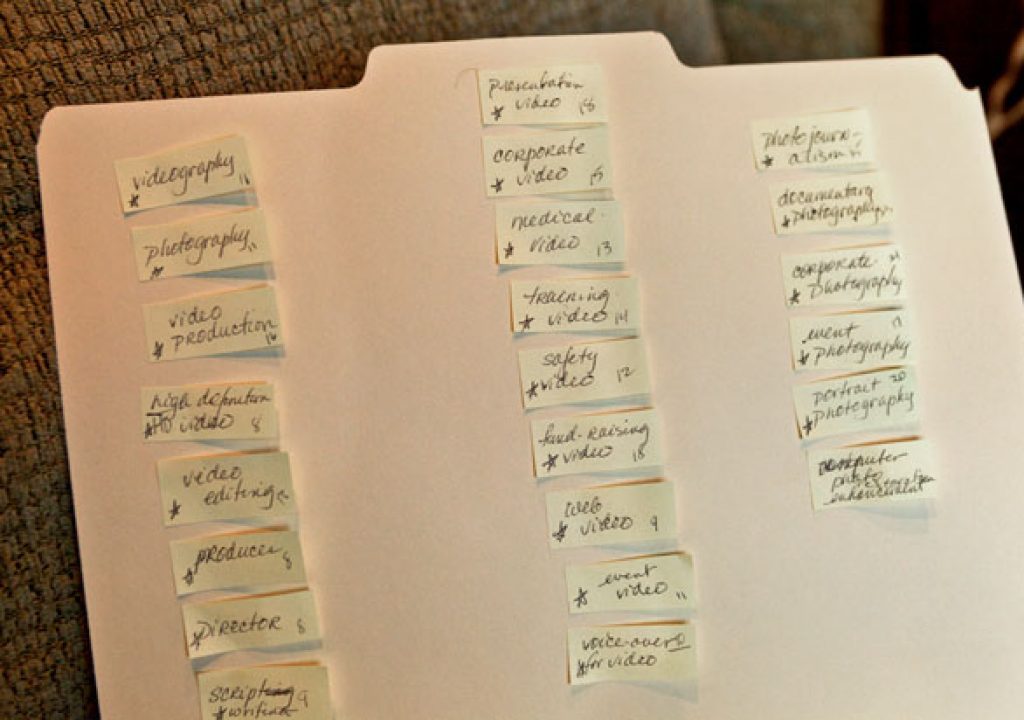 videography
*
photography
*
video
* production
high definition
* HD video 8
video
* editing
* producer 8
* Director 8
scripting 9
* writing
presentation
* video 18
corporate
* video 15
medical
* video 13
training
* video 14
safety
* video 12
fund-raising
* video 18
web
* video 9
event
* video 11
voice-over
* for video
photojourn-
* alism
documentary
* photography
corporate
* photography
event
* photography
portrait 20
* photography
computer
photo
enhancement